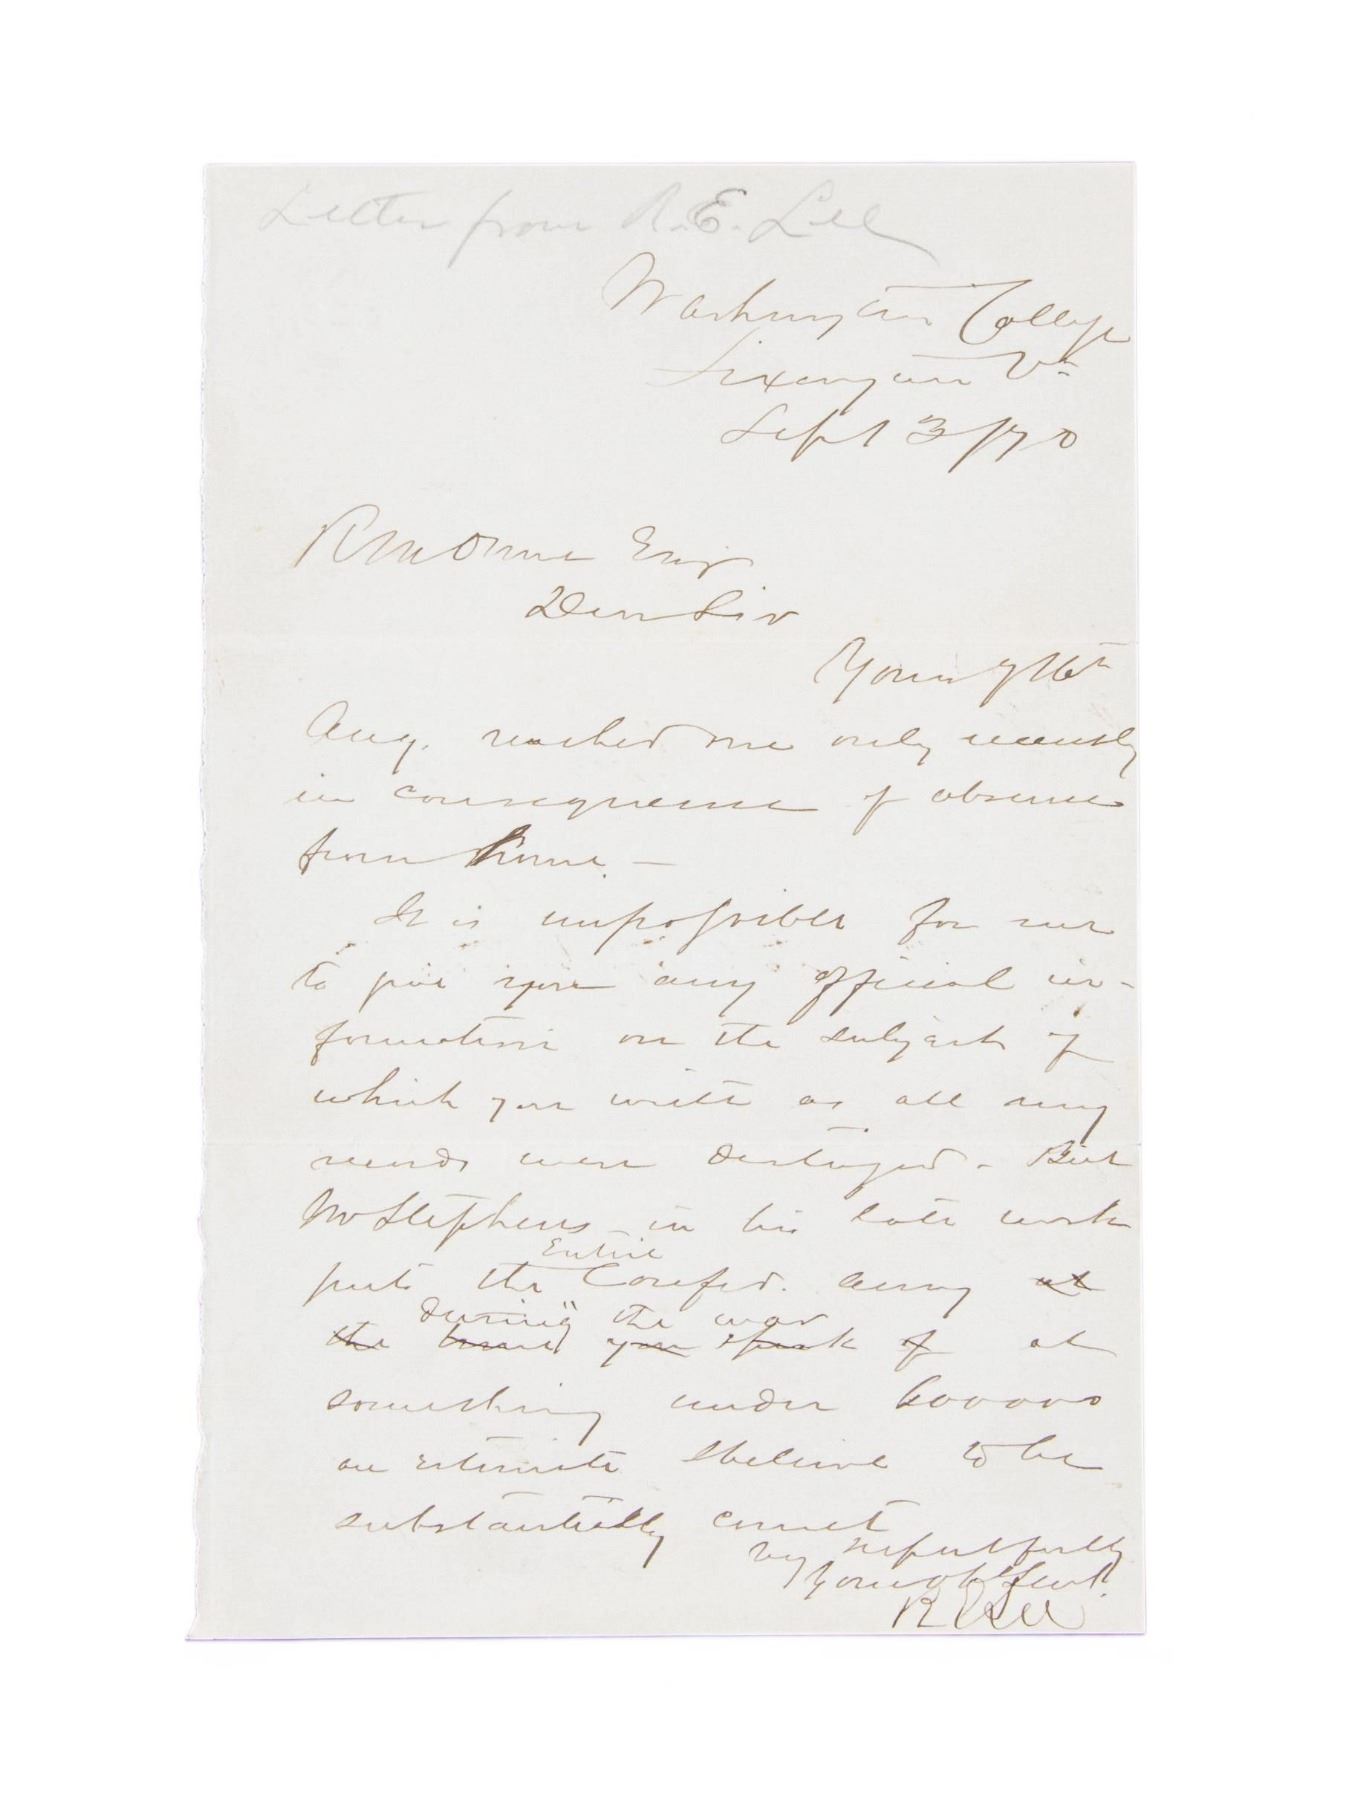 Letter from R. E. Lee
Washington College
Lexington Va
Sept 3/70
R M Orme Esq
Dear Sir
Yours of 16th
Aug. reached me only recently
in consequence of absence
from home. —
It is impossible for me
to give you any official in-
formation on the subject of
which you write as all my
records were destroyed - But
Mr Stephens in his late work
Entire
puts the Confed. army at
during the war
the time you speak of at
something under 600000
an estimate I believe to be
substantially correct
very respectfully
Your obt Servt.
R E Lee